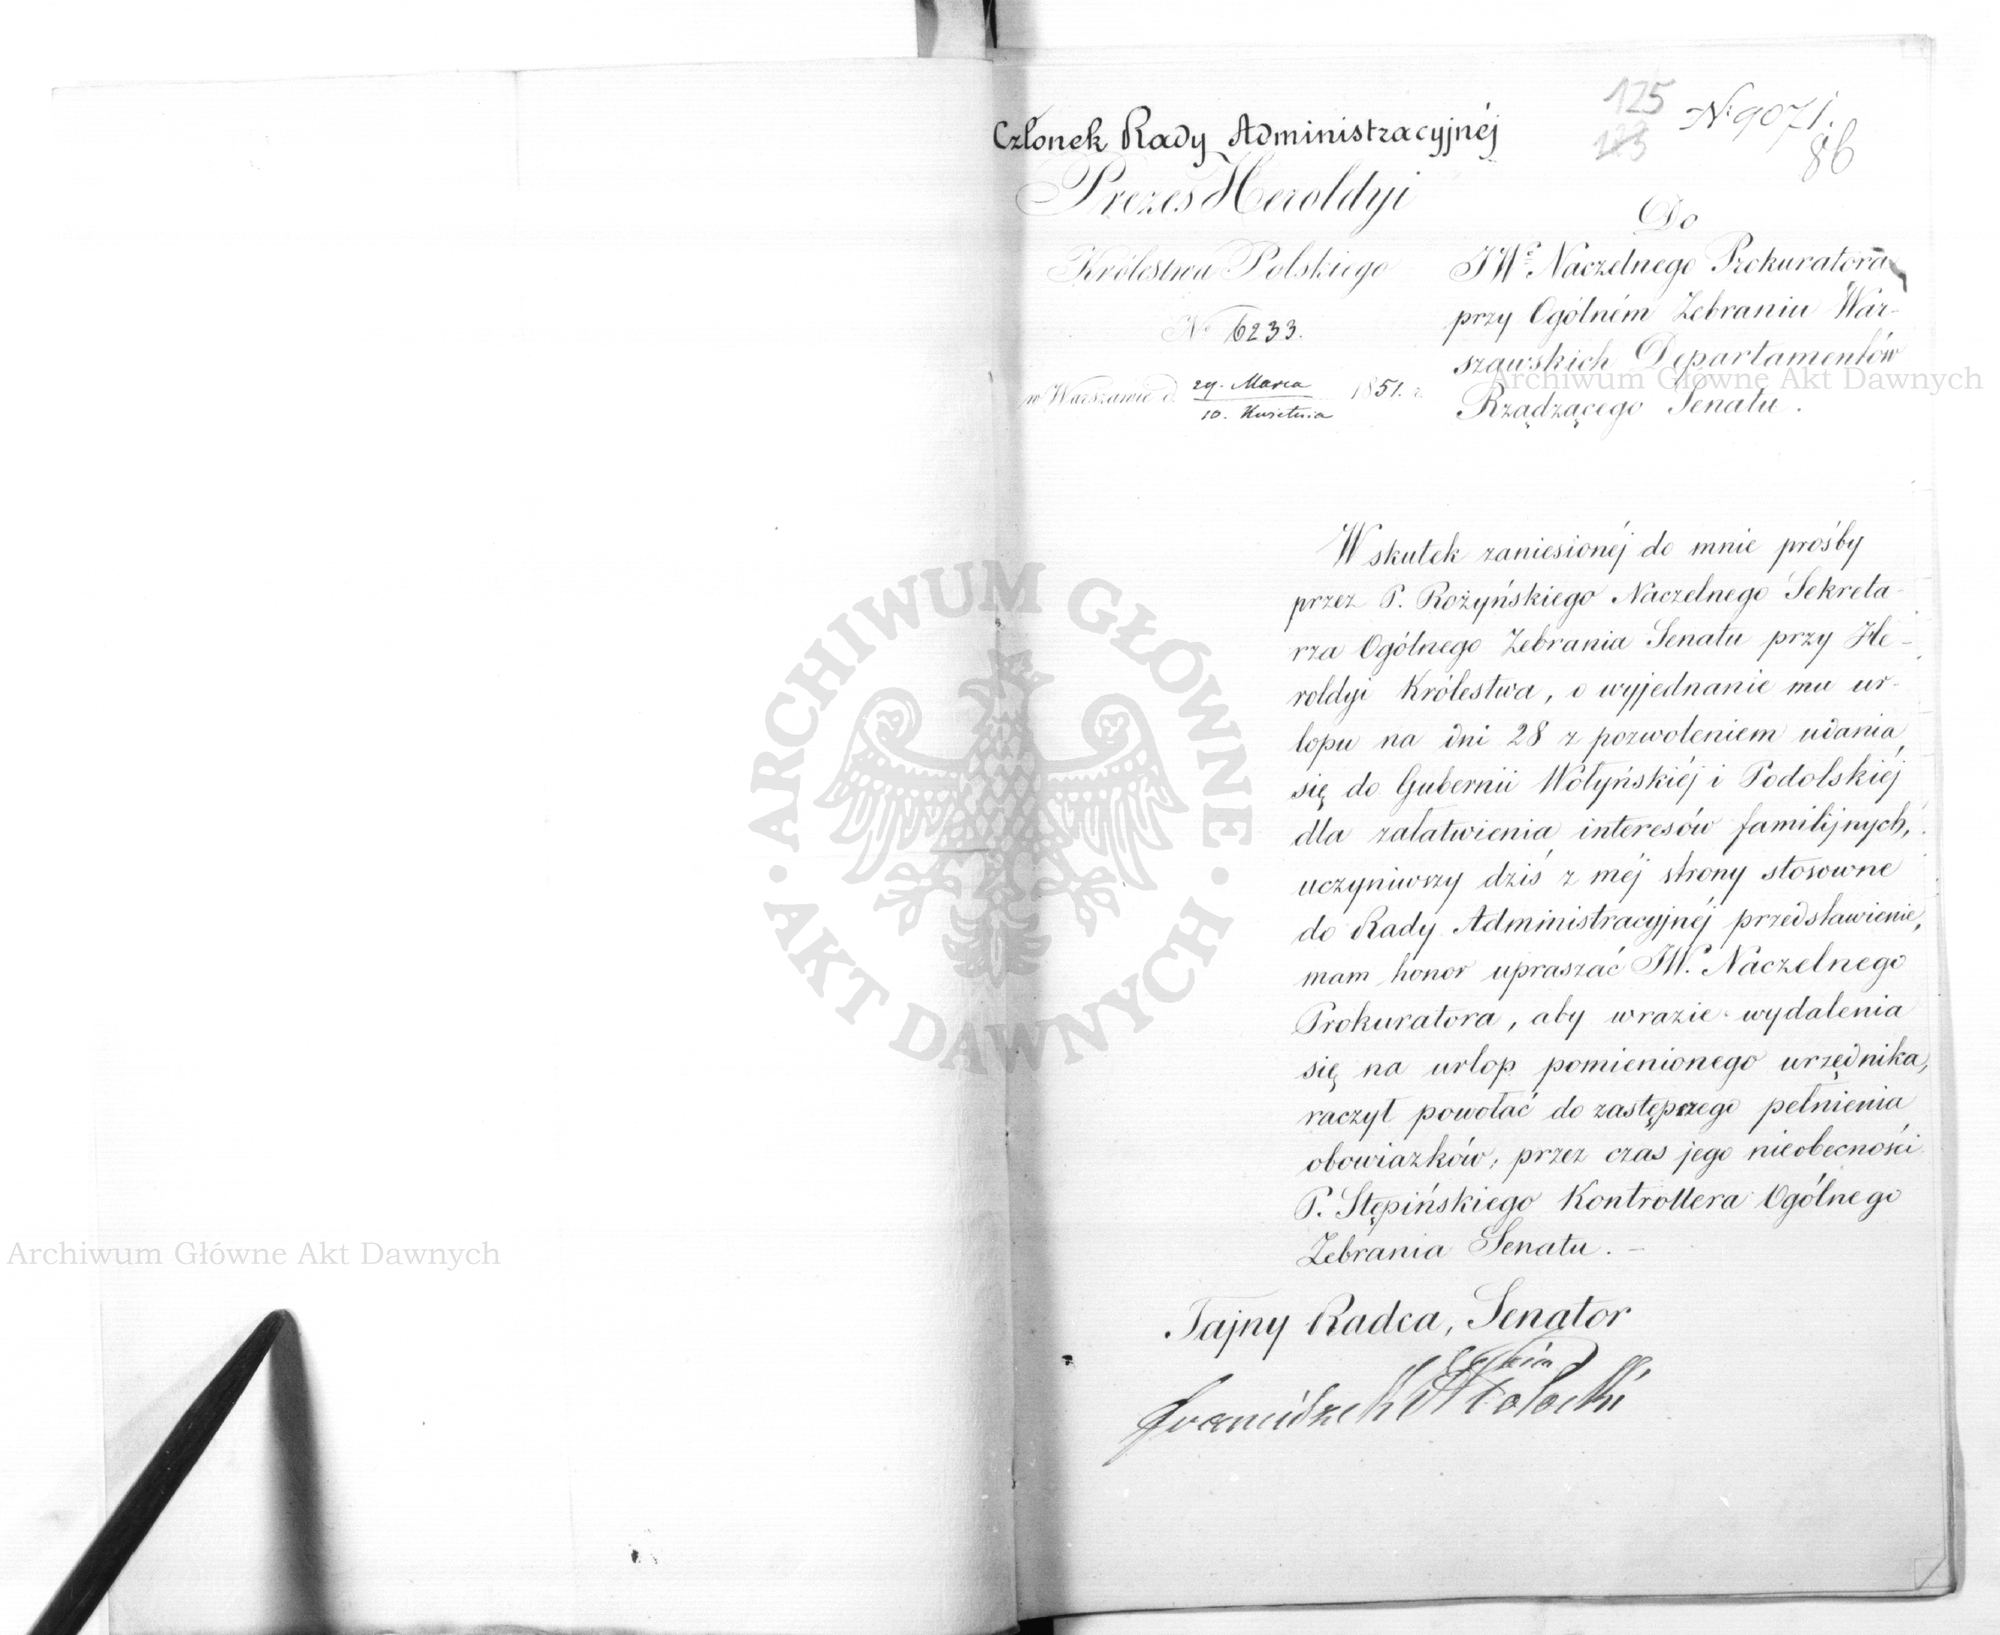 125
N: 9071.
123
86
Członek Rady Administracyjnéj
Prezes Heroldyi
Królestwa Polskiego
No 6233.
w Warszawie d. 29. Marca
10. Kwietnia
1851. r.
Do
JWo Naczelnego Prokuratora
przy Ogólném Zebraniu War-
szawskich Departamentów
Rządzącego Senatu.
W skutek zaniesionéj do mnie prośby
przez P. Rożyńskiego Naczelnego Sekreta-
rza Ogólnego Zebrania Senatu przy He-
roldyi Królestwa, o wyjednanie mu ur-
lopu na dni 28 z pozwoleniem udania
się do Gubernii Wołyńskiéj i Podolskiéj
dla załatwienia interesów familijnych,
uczyniwszy dziś z méj strony stosowne
do Rady Administracyjnéj przedstawienie,
mam honor upraszać JW. Naczelnego
Prokuratora, aby w razie wydalenia
się na urlop pomienionego urzędnika,
raczył powołać do zastępczego pełnienia
obowiazków, przez czas jego nieobecności
P. Stępińskiego Kontrollera Ogólnego
Zebrania Senatu. -
Tajny Radca, Senator
Franciszek Potocki
Archiwum Główne Akt Dawnych
Archiwum Główne Akt Dawnych
ARCHIWUM GŁÓWNE · AKT DAWNYCH ·